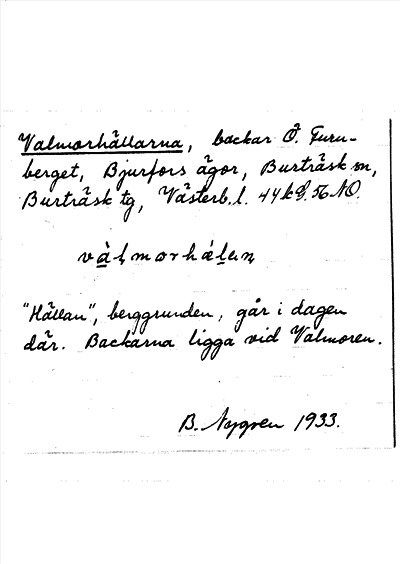 Valmorhällarna, backar Ö. Furu-
berget, Bjurfors ägor, Burträsk sn,
Burträsk tg, Västerb.l. 44k9.56 NO.
vàl̥morhälen̥
"Hällan", berggrunden, går i dagen
där. Backarna ligga vid Valmoren.
B. Nygren 1933.